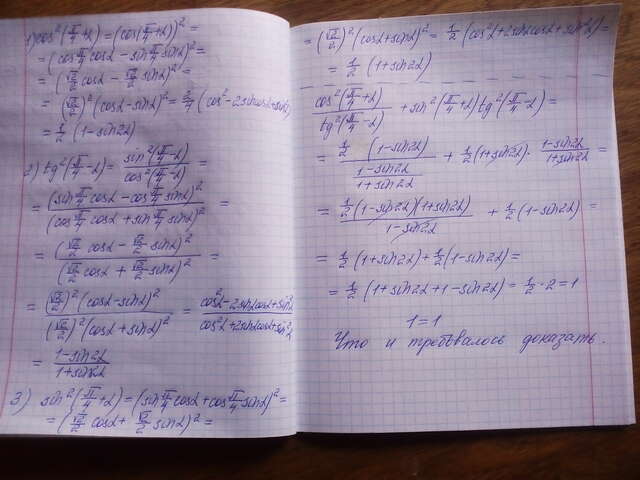 1) cos²(π/4+α) = (cos(π/4+α))² =
= (cos π/4 cosα - sin π/4 sinα)² =
= (√2/2 cosα - √2/2 sinα)² =
= (√2/2)² (cosα - sinα)² = 2/4 (cos² - 2sinαcosα + sin²α)
= 1/2 (1 - sin2α)
2) tg²(π/4-α) = sin²(π/4-α) / cos²(π/4-α) =
= (sin π/4 cosα - cos π/4 sinα)² / (cos π/4 cosα + sin π/4 sinα)² =
= (√2/2 cosα - √2/2 sinα)² / (√2/2 cosα + √2/2 sinα)² =
= (√2/2)² (cosα - sinα)² / (√2/2)² (cosα + sinα)² = cos²α - 2sinαcosα + sin²α / cos²α + 2sinαcosα + sin²α
= 1-sin2α / 1+sin2α
3) sin²(π/4+α) = (sin π/4 cosα + cos π/4 sinα)² =
= (√2/2 cosα + √2/2 sinα)² =
= (√2/2)² (cosα + sinα)² = 1/2 (cos²α + 2sinαcosα + sin²α) =
= 1/2 (1 + sin2α)
cos²(π/4+α) / tg²(π/4-α) + sin²(π/4+α) tg²(π/4-α) =
= 1/2 (1-sin2α) / 1-sin2α / 1+sin2α + 1/2 (1+sin2α) · 1-sin2α / 1+sin2α =
= 1/2 (1-sin2α)(1+sin2α) / 1-sin2α + 1/2 (1-sin2α) =
= 1/2 (1+sin2α) + 1/2 (1-sin2α) =
= 1/2 (1+sin2α+1-sin2α) = 1/2 · 2 = 1
1=1
Что и требовалось доказать.